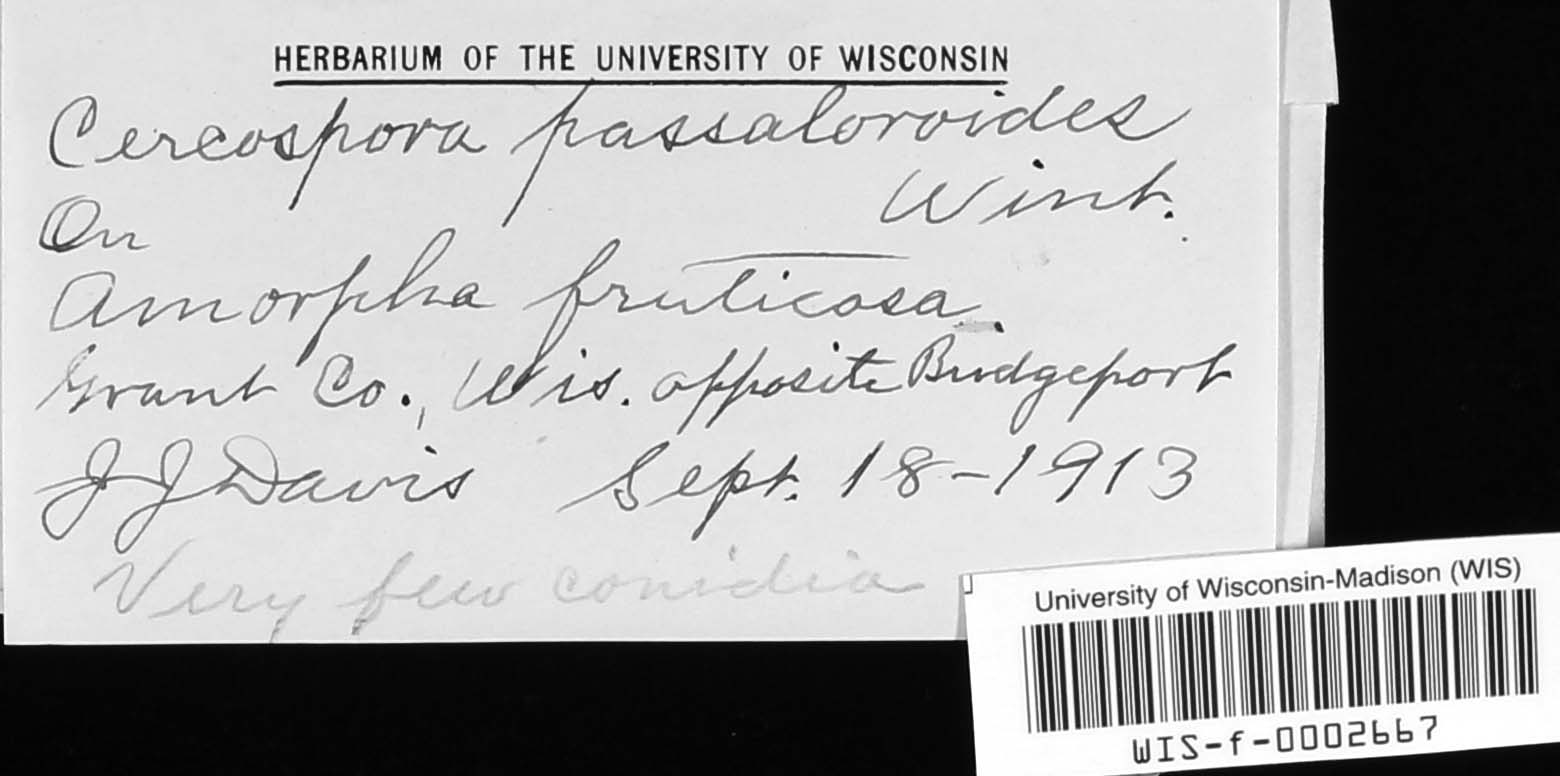 HERBARIUM OF THE UNIVERSITY OF WISCONSIN
Cercospora passaloroides
Wint.
On
Amorpha fruticosa
Grant Co., Wis. opposite Bridgeport
J J Davis Sept. 18-1913
Very few conidia
University of Wisconsin-Madison (WIS)
WIS-f-0002667